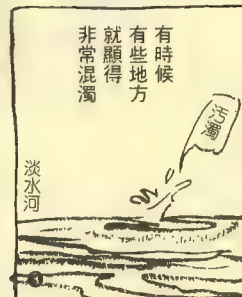 有時候
有些地方
就顯得
非常混濁
污濁
淡水河